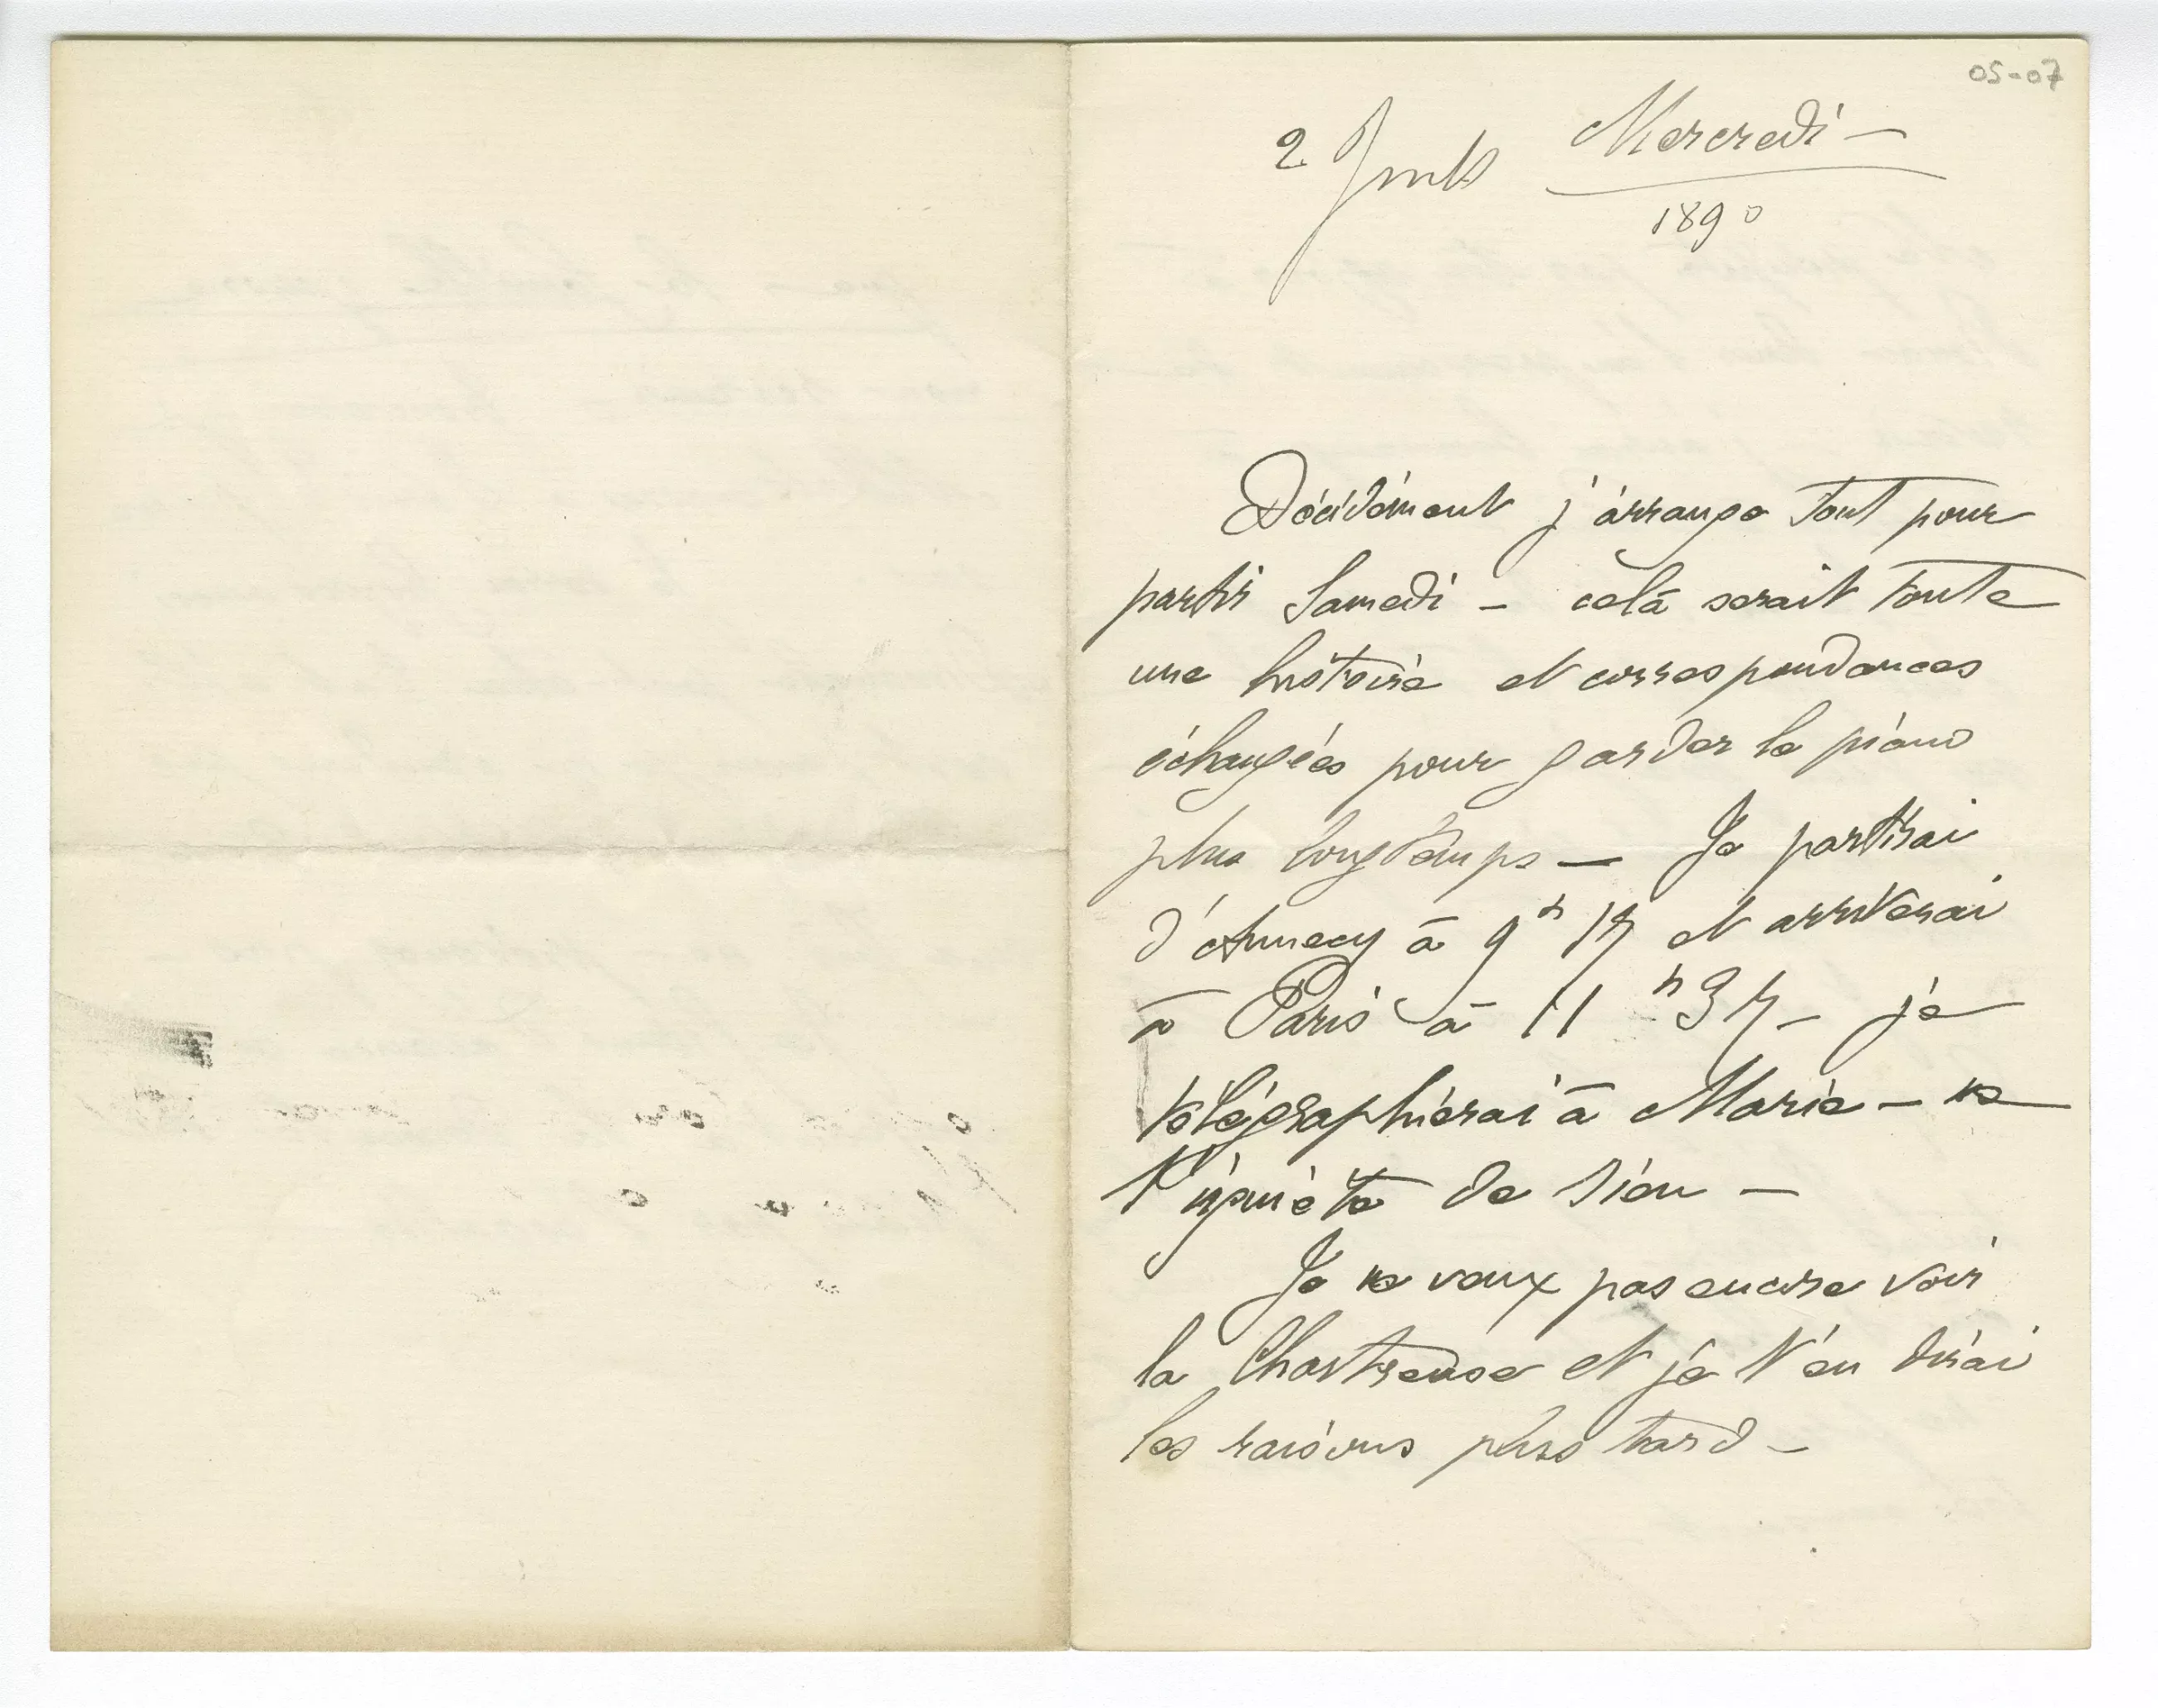 05-07
2 Juillet Mercredi —
1890
Décidément j'arrange tout pour
partir Samedi — celà serait toute
une histoire et correspondances
échangées pour garder le piano
plus longtemps — Je partirai
d'Annecy à 9h 17 et arriverai
à Paris à 11 h 37 — je
télégraphierai à Marie — ne
t'inquiète de rien —
Je ne veux pas encore voir
la Chartreuse et je t'en dirai
les raisons plus tard —